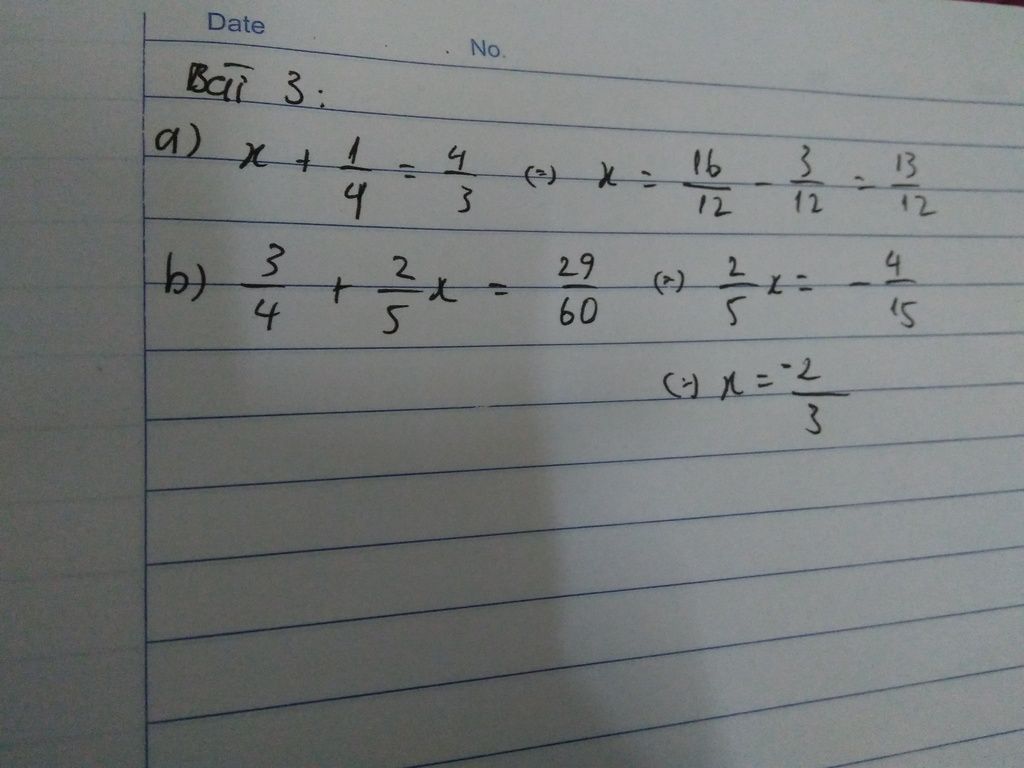 Date
No.
Bài 3:
a) x + 1/4 = 4/3 (=) x = 16/12 - 3/12 = 13/12
b) 3/4 + 2/5 x = 29/60 (=) 2/5 x = - 4/15
(=) x = -2/3